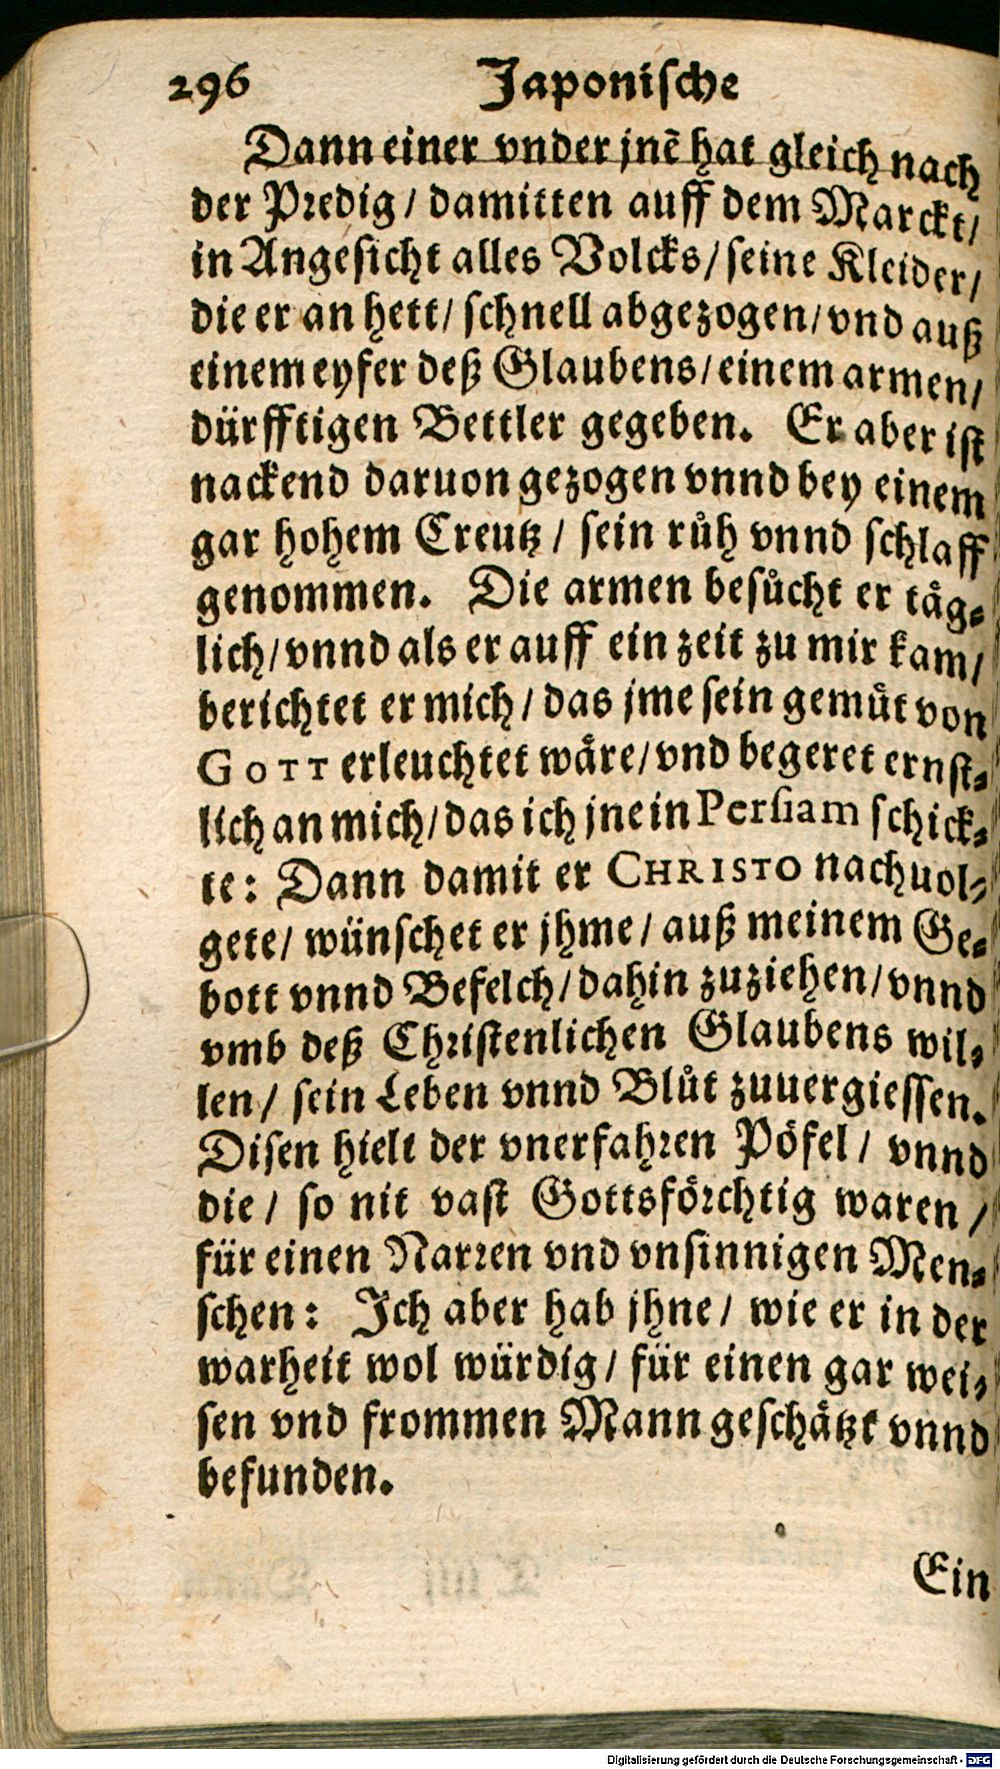 296 Japonische
Dann einer vnder jnẽ hat gleich nach
der Predig / damitten auff dem Marckt /
in Angesicht alles Volcks / seine Kleider /
die er an hett / schnell abgezogen / vnd auß
einem eyfer deß Glaubens / einem armen /
dürfftigen Bettler gegeben. Er aber ist
nackend daruon gezogen vnnd bey einem
gar hohem Creutz / sein růh vnnd schlaff
genommen. Die armen besůcht er täg⸗
lich / vnnd als er auff ein zeit zu mir kam /
berichtet er mich / das jme sein gemüt von
GOTT erleuchtet wäre / vnd begeret ernst⸗
lich an mich / das ich jne in Persiam schick⸗
te: Dann damit er CHRISTO nachuol⸗
gete / wünschet er jhme / auß meinem Ge⸗
bott vnnd Befelch / dahin zuziehen / vnnd
vmb deß Christenlichen Glaubens wil⸗
len / sein Leben vnnd Blůt zuuergiessen.
Disen hielt der vnerfahren Pöfel / vnnd
die / so nit vast Gottsförchtig waren /
für einen Narren vnd vnsinnigen Men⸗
schen: Ich aber hab jhne / wie er in der
warheit wol würdig / für einen gar wei⸗
sen vnd frommen Mann geschätzt vnnd
befunden.
Ein
Digitalisierung gefördert durch die Deutsche Forschungsgemeinschaft - DFG